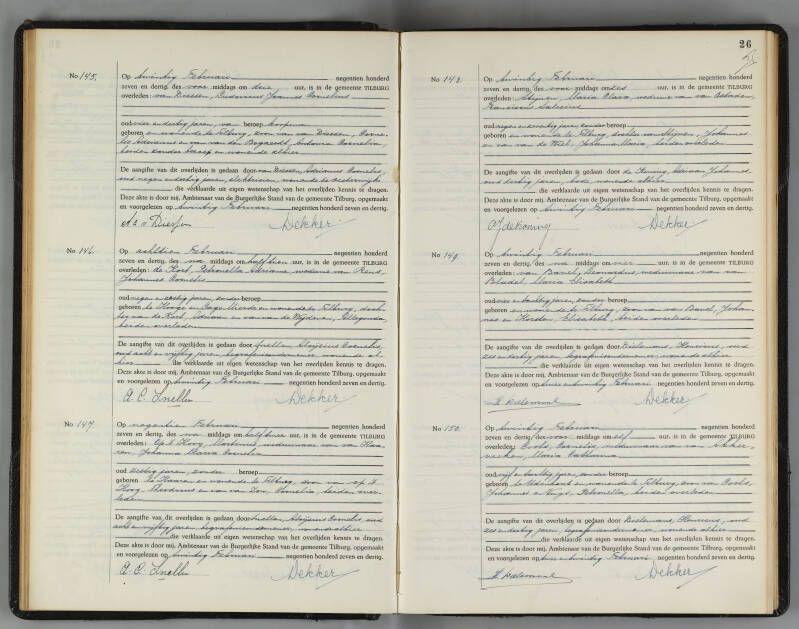 No 145.
Op twintig Februari negentien honderd
zeven en dertig, des voor middags om drie uur, is in de gemeente TILBURG
overleden: van Diessen, Ludovicus Joannes Cornelius
oud vier en dertig jaren, van beroep
geboren en wonende te Tilburg, zoon van van Diessen, Corne-
lis Adrianus en van van den Bogaerdt, Antonia Cornelia,
beiden zonder beroep en wonende alhier
De aangifte van dit overlijden is gedaan door van Diessen, Adrianus Cornelis,
oud negen en dertig jaren, electricien, wonende te
die verklaarde uit eigen wetenschap van het overlijden kennis te dragen.
Deze akte is door mij, Ambtenaar van de Burgerlijke Stand van de gemeente Tilburg, opgemaakt
en voorgelezen op twintig Februari negentien honderd zeven en dertig.
Dekker
No 146.
Op achttien Februari negentien honderd
zeven en dertig, des na middags om half tien uur, is in de gemeente TILBURG
overleden: de Kort, Petronella Adriana, weduwe van
Johannes Cornelis
oud negen en zestig jaren, zonder beroep
geboren te Hooge en Lage Mierde en wonende te Tilburg, doch-
ter van de Kort, Adriaan en van van de Wijdeven, Allegonda,
beiden overleden
De aangifte van dit overlijden is gedaan door Snellen, Aloijsius Cornelis,
oud acht en vijftig jaren, begrafenisondernemer, wonende al-
hier die verklaarde uit eigen wetenschap van het overlijden kennis te dragen.
Deze akte is door mij, Ambtenaar van de Burgerlijke Stand van de gemeente Tilburg, opgemaakt
en voorgelezen op twintig Februari negentien honderd zeven en dertig.
A. C. Snellen Dekker
No 147.
Op negentien Februari negentien honderd
zeven en dertig, des na middags om half uur, is in de gemeente TILBURG
overleden: Op 't Hoog, Martinus, weduwnaar van van Haa-
ren, Johanna Maria Cornelia
oud zestig jaren, zonder beroep
geboren te Haaren en wonende te Tilburg, zoon van op 't
Hoog, Theodorus en van van Zon, Cornelia, beiden over-
leden
De aangifte van dit overlijden is gedaan door Snellen, Aloijsius Cornelis, oud
acht en vijftig jaren, begrafenisondernemer, wonende alhier
die verklaarde uit eigen wetenschap van het overlijden kennis te dragen.
Deze akte is door mij, Ambtenaar van de Burgerlijke Stand van de gemeente Tilburg, opgemaakt
en voorgelezen op twintig Februari negentien honderd zeven en dertig.
A. C. Snellen Dekker
26
No 148.
Op twintig Februari negentien honderd
zeven en dertig, des voor middags om zes uur, is in de gemeente TILBURG
overleden: Stijnen, Maria Clara, weduwe van van
Franciscus
oud negen en jaren, zonder beroep
geboren en wonende te Tilburg, dochter van Stijnen, Johannes
en van van de Wiel, Johanna Maria, beiden overleden
De aangifte van dit overlijden is gedaan door de Koning, Adriaan Johannes,
oud dertig jaren, bode, wonende alhier
die verklaarde uit eigen wetenschap van het overlijden kennis te dragen.
Deze akte is door mij, Ambtenaar van de Burgerlijke Stand van de gemeente Tilburg, opgemaakt
en voorgelezen op twintig Februari negentien honderd zeven en dertig.
AJdeKoning Dekker
No 149.
Op twintig Februari negentien honderd
zeven en dertig, des na middags om vier uur, is in de gemeente TILBURG
overleden: van Bavel, Leonardus, weduwnaar van van
Bladel, Maria Elisabeth
oud en tachtig jaren, zonder beroep
geboren en wonende te Tilburg, zoon van van Bavel, Johan-
nes en Horsten, Elisabeth, beiden overleden
De aangifte van dit overlijden is gedaan door Dielemans, Henricus, oud
zes en dertig jaren, begrafenisondernemer, wonende alhier
die verklaarde uit eigen wetenschap van het overlijden kennis te dragen.
Deze akte is door mij, Ambtenaar van de Burgerlijke Stand van de gemeente Tilburg, opgemaakt
en voorgelezen op twee en twintig Februari negentien honderd zeven en dertig.
Dekker
No 150.
Op twintig Februari negentien honderd
zeven en dertig, des voor middags om elf uur, is in de gemeente TILBURG
overleden: Cools, Cornelis, weduwnaar van van
Maria Catharina
oud vijf en tachtig jaren, zonder beroep
geboren te Udenhout en wonende te Tilburg, zoon van Cools,
Johannes en Petronella, beiden overleden
De aangifte van dit overlijden is gedaan door Dielemans, Henricus, oud
zes en dertig jaren, begrafenisondernemer, wonende alhier
die verklaarde uit eigen wetenschap van het overlijden kennis te dragen.
Deze akte is door mij, Ambtenaar van de Burgerlijke Stand van de gemeente Tilburg, opgemaakt
en voorgelezen op twee en twintig Februari negentien honderd zeven en dertig.
Dekker